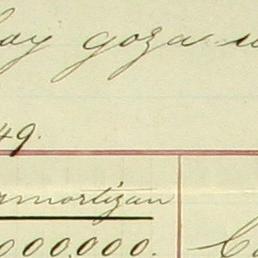 hoy goza u
49.
amortizan
000,000. Ca